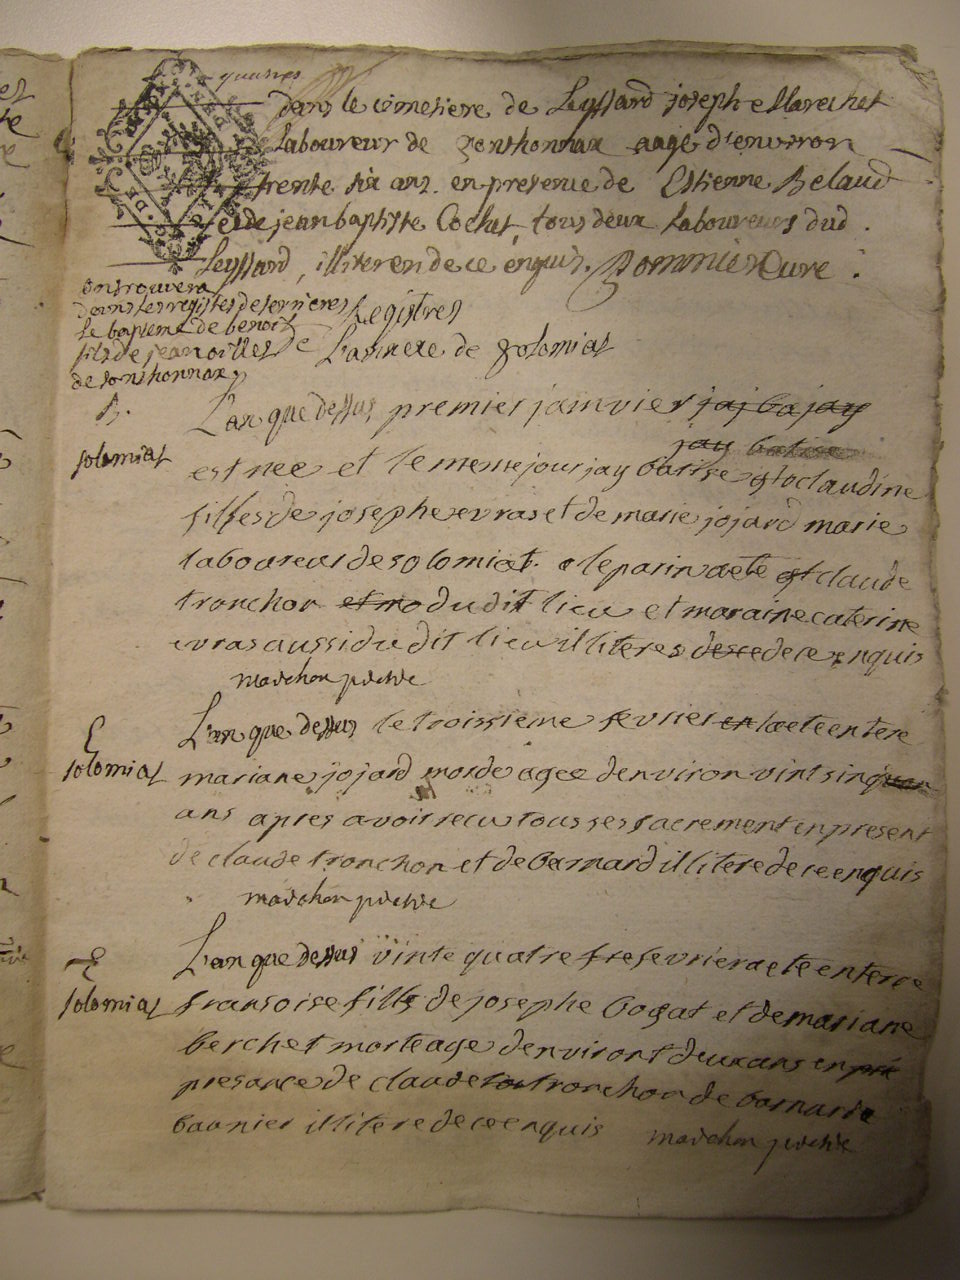 dans le cimetiere de Leyssard joseph Marechet
Laboureur de Sonthonnax aagé d'environ
trente six ans. en presence de Estienne Belaud
et de jean baptiste Cochet, tous deux Laboureurs dud.
Leyssard, illiteren de ce enquis. Pommier Cure.
on trouvera
dans les registes de serrieres
le bapteme de benoit
fils de jean
de sonthonnax
Registres
de L'annexe de solomiat
B.
solomiat
L'an que dessus premier janvier jaj ba jay
jay batise
est nee et le meme jour jay batise claudine
filles de josephe evras et de marie jojard marie
laboureur de solomiat. le parin a ete claude
tronchon et ma du dit lieu et maraine caterine
evras aussi du dit lieu illiteres de ce enquis
marchon pretre
E
solomiat
L'an que dessus le troissieme fevrier en la ete entere
mariane jojard morde agee denviron vint sinq
ans apres avoit recu tous ses sacrement en present
de claude tronchon et de barnard illitere de ce enquis
marchon pretre
E
solomiat
L'an que dessus vinte quatre fre fevrier a ete enterre
fransoise fille de josephe bogat et de mariane
berchet morte age denviront deux ans en pré
presance de claude tronchon de barnard
baunier illitere de ce enquis marchon pretre